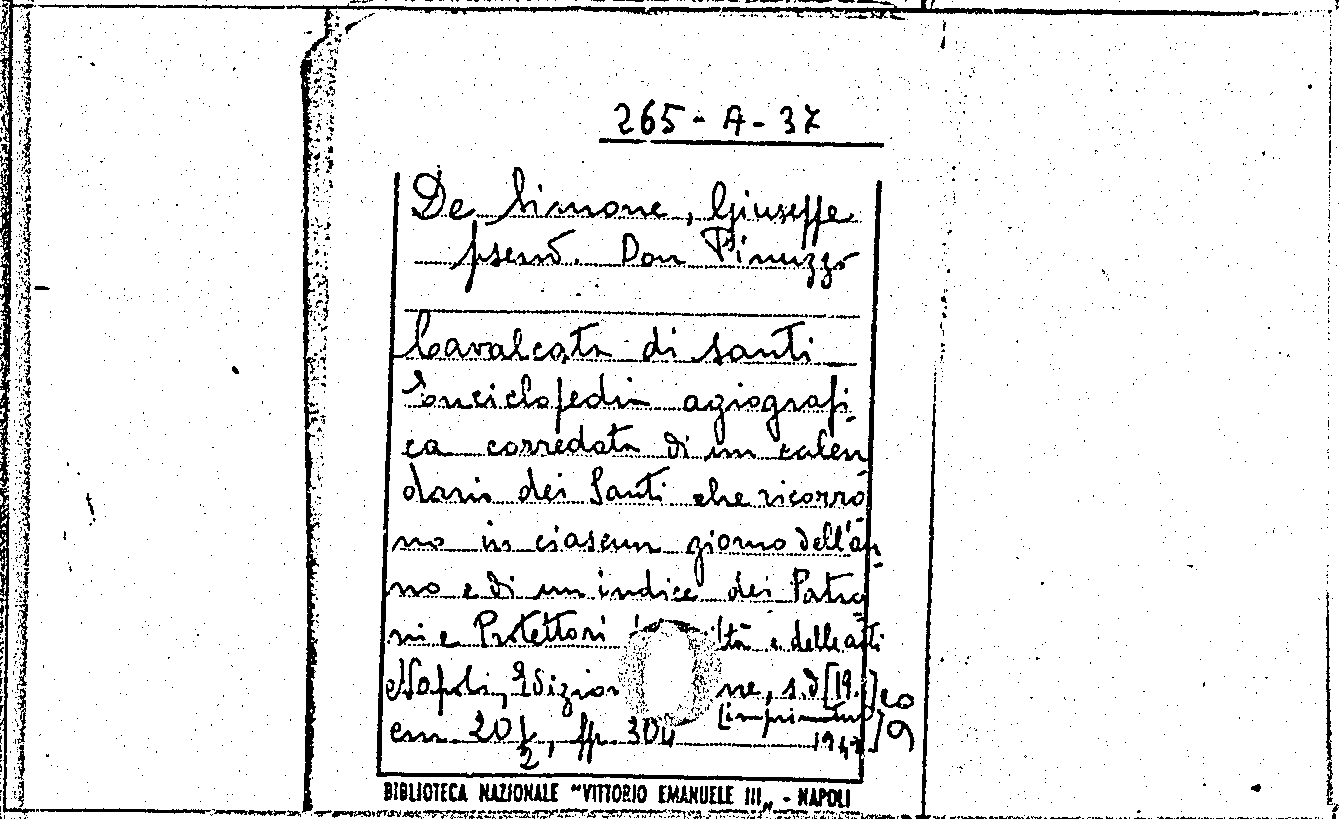 265-A-37
De Simone, Giuseppe
pseud. Don Pinuzzo
Cavalcata di santi
Enciclopedia agiografi-
ca corredata di un calen
dario dei Santi che ricorro
no in ciascun giorno dell'an
no e di un indice dei Patro
ni e Protettori e delle arti
Napoli, s.d [19..]
[imprimatur
cm. 20 1/2, pp. 304 194 ]
BIBLIOTECA NAZIONALE "VITTORIO EMANUELE III„ - NAPOLI